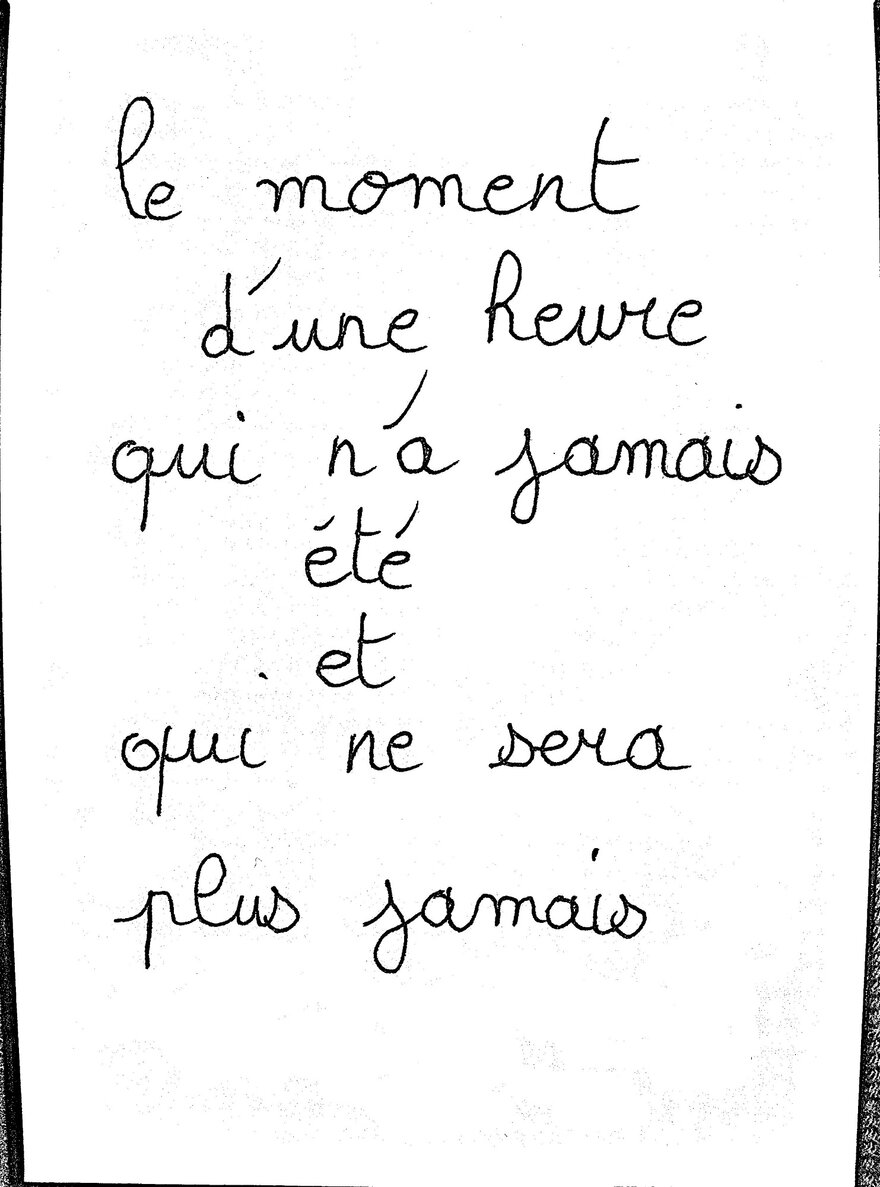 le moment
d'une heure
qui n'a jamais
été
et
qui ne sera
plus jamais